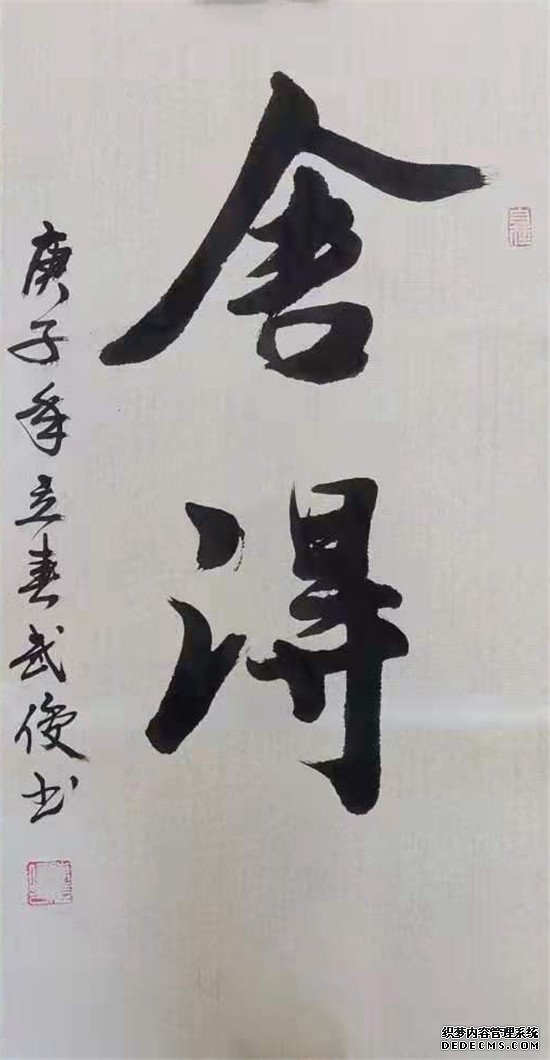 舍得
庚子年立春武俊书
织梦内容管理系统
DEDECMS.COM